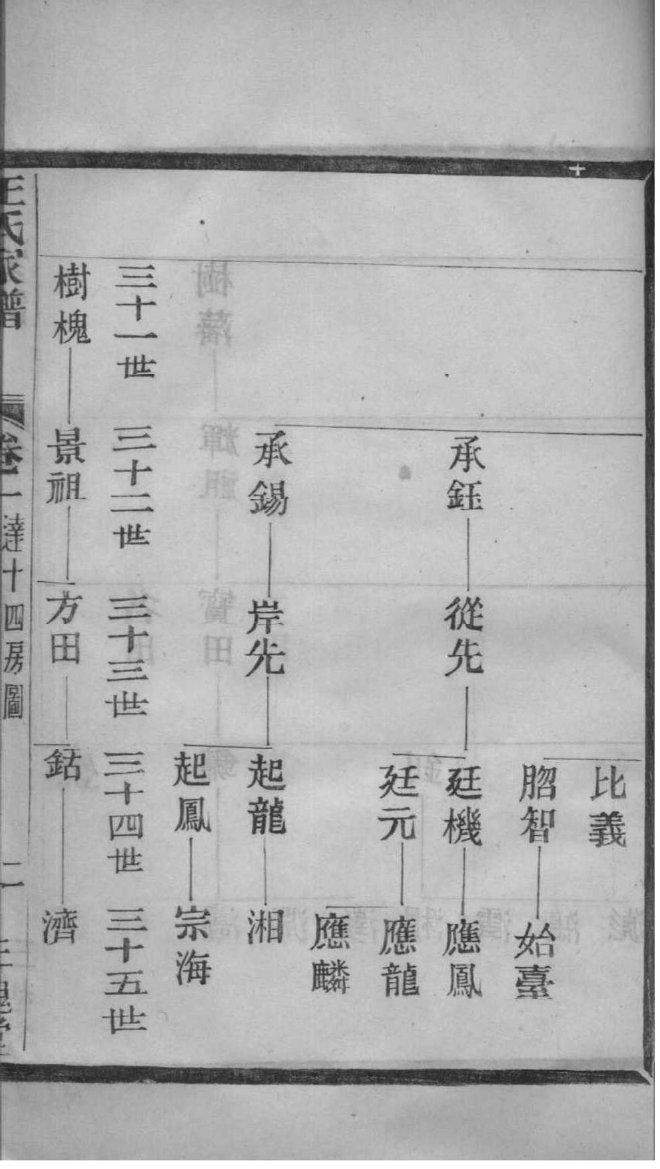 比義
䏴智
始臺
承鈺
從先
廷機
應鳳
廷元
應龍
應麟
承錫
岸先
起龍
湘
起鳳
宗海
三十一世
三十二世
三十三世
三十四世
三十五世
樹槐
景祖
方田
鈷
濟
王氏家譜
卷一
達十四房圖
二
三槐堂